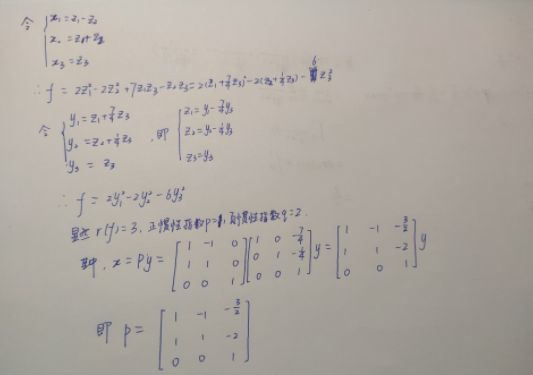 令 { x₁ = z₁ - z₂
x₂ = z₁ + z₂
x₃ = z₃
∴ f = 2z₁² - 2z₂² + 7z₁z₃ - z₂z₃ = 2(z₁ + 7/4 z₃)² - 2(z₂ + 1/4 z₃) - 6 z₃²
令 { y₁ = z₁ + 7/4 z₃
y₂ = z₂ + 1/4 z₃
y₃ = z₃
, 即 { z₁ = y₁ - 7/4 y₃
z₂ = y₂ - 1/4 y₃
z₃ = y₃
∴ f = 2y₁² - 2y₂² - 6y₃²
显然 r(f) = 3, 正惯性指数 p = 1, 负惯性指数 q = 2.
其中, x = Py = [1 -1 0; 1 1 0; 0 0 1] [1 0 -7/4; 0 1 -1/4; 0 0 1] y = [1 -1 -3/2; 1 1 -2; 0 0 1] y
即 P = [1 -1 -3/2; 1 1 -2; 0 0 1]